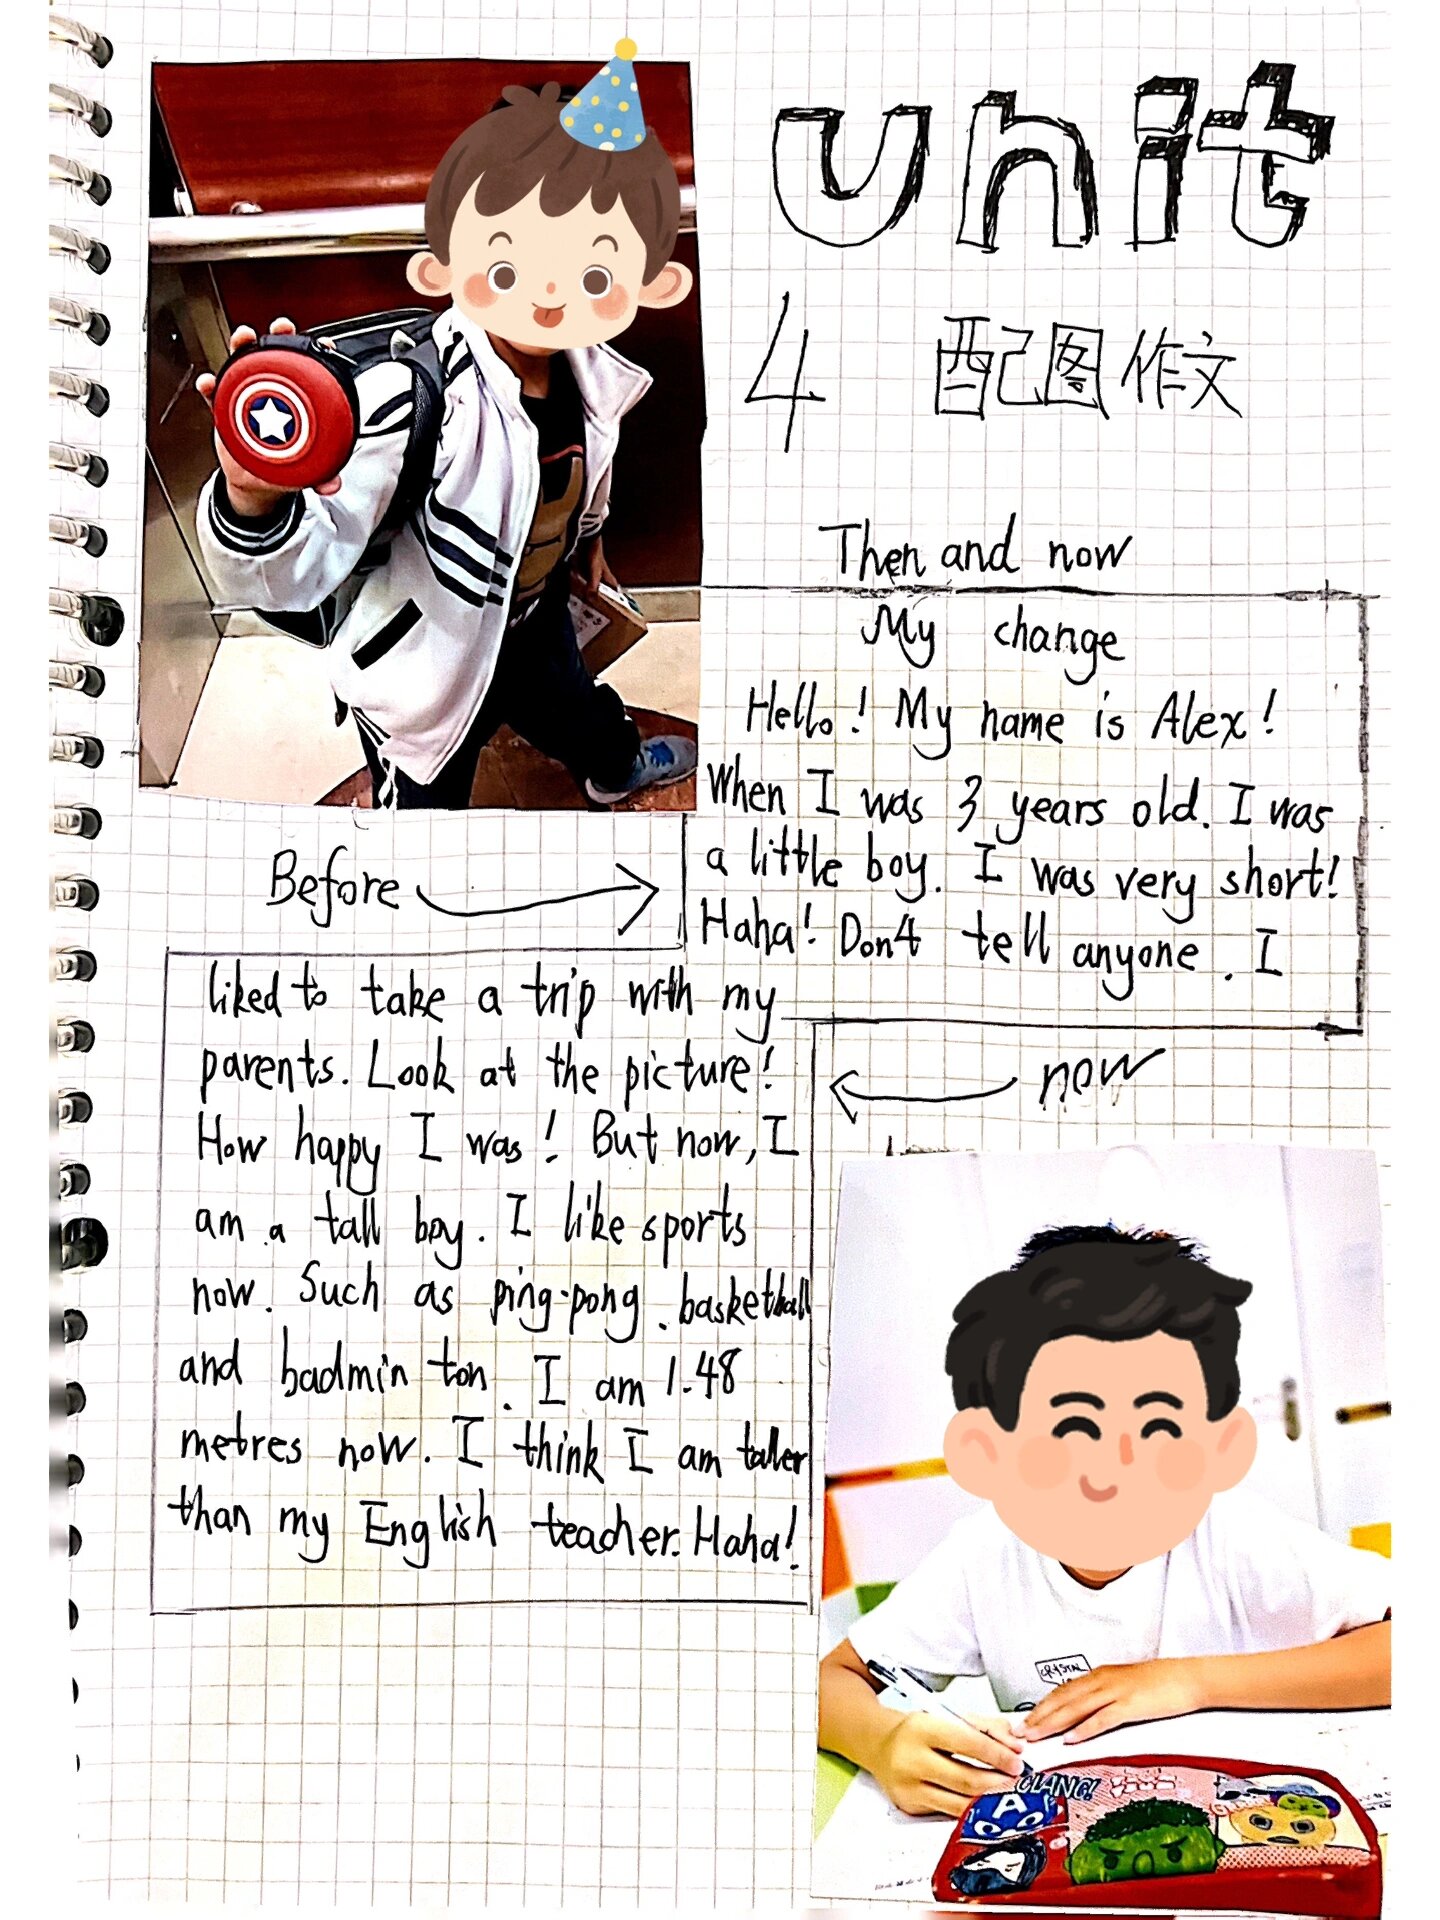 unit
4 配图作文
Then and now
My change
Hello! My name is Alex!
When I was 3 years old. I was
a little boy. I was very short!
Haha! Don4 tell anyone. I
Before
liked to take a trip with my
parents. Look at the picture!
How happy I was! But now, I
am a tall boy. I like sports
now. Such as ping-pong. basketball
and badminton. I am 1.48
metres now. I think I am taller
than my English teacher. Haha!
now
CRYSTAL
CLANG!
A